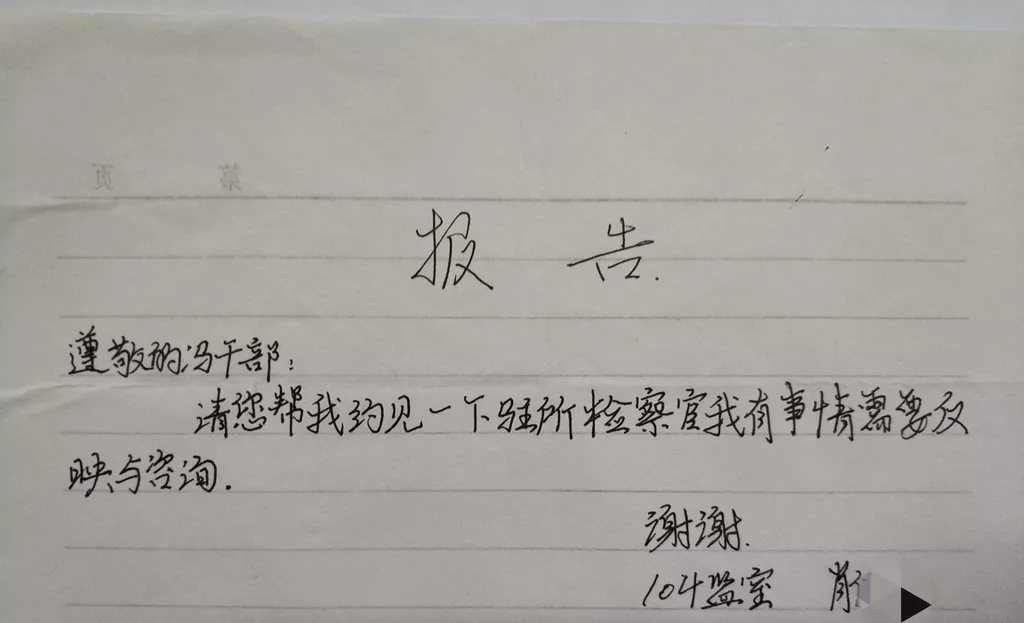 第 页
报 告.
遵敬的冯干部:
请您帮我约见一下驻所检察官我有事情需要反
映与咨询.
谢谢.
104监室 肖